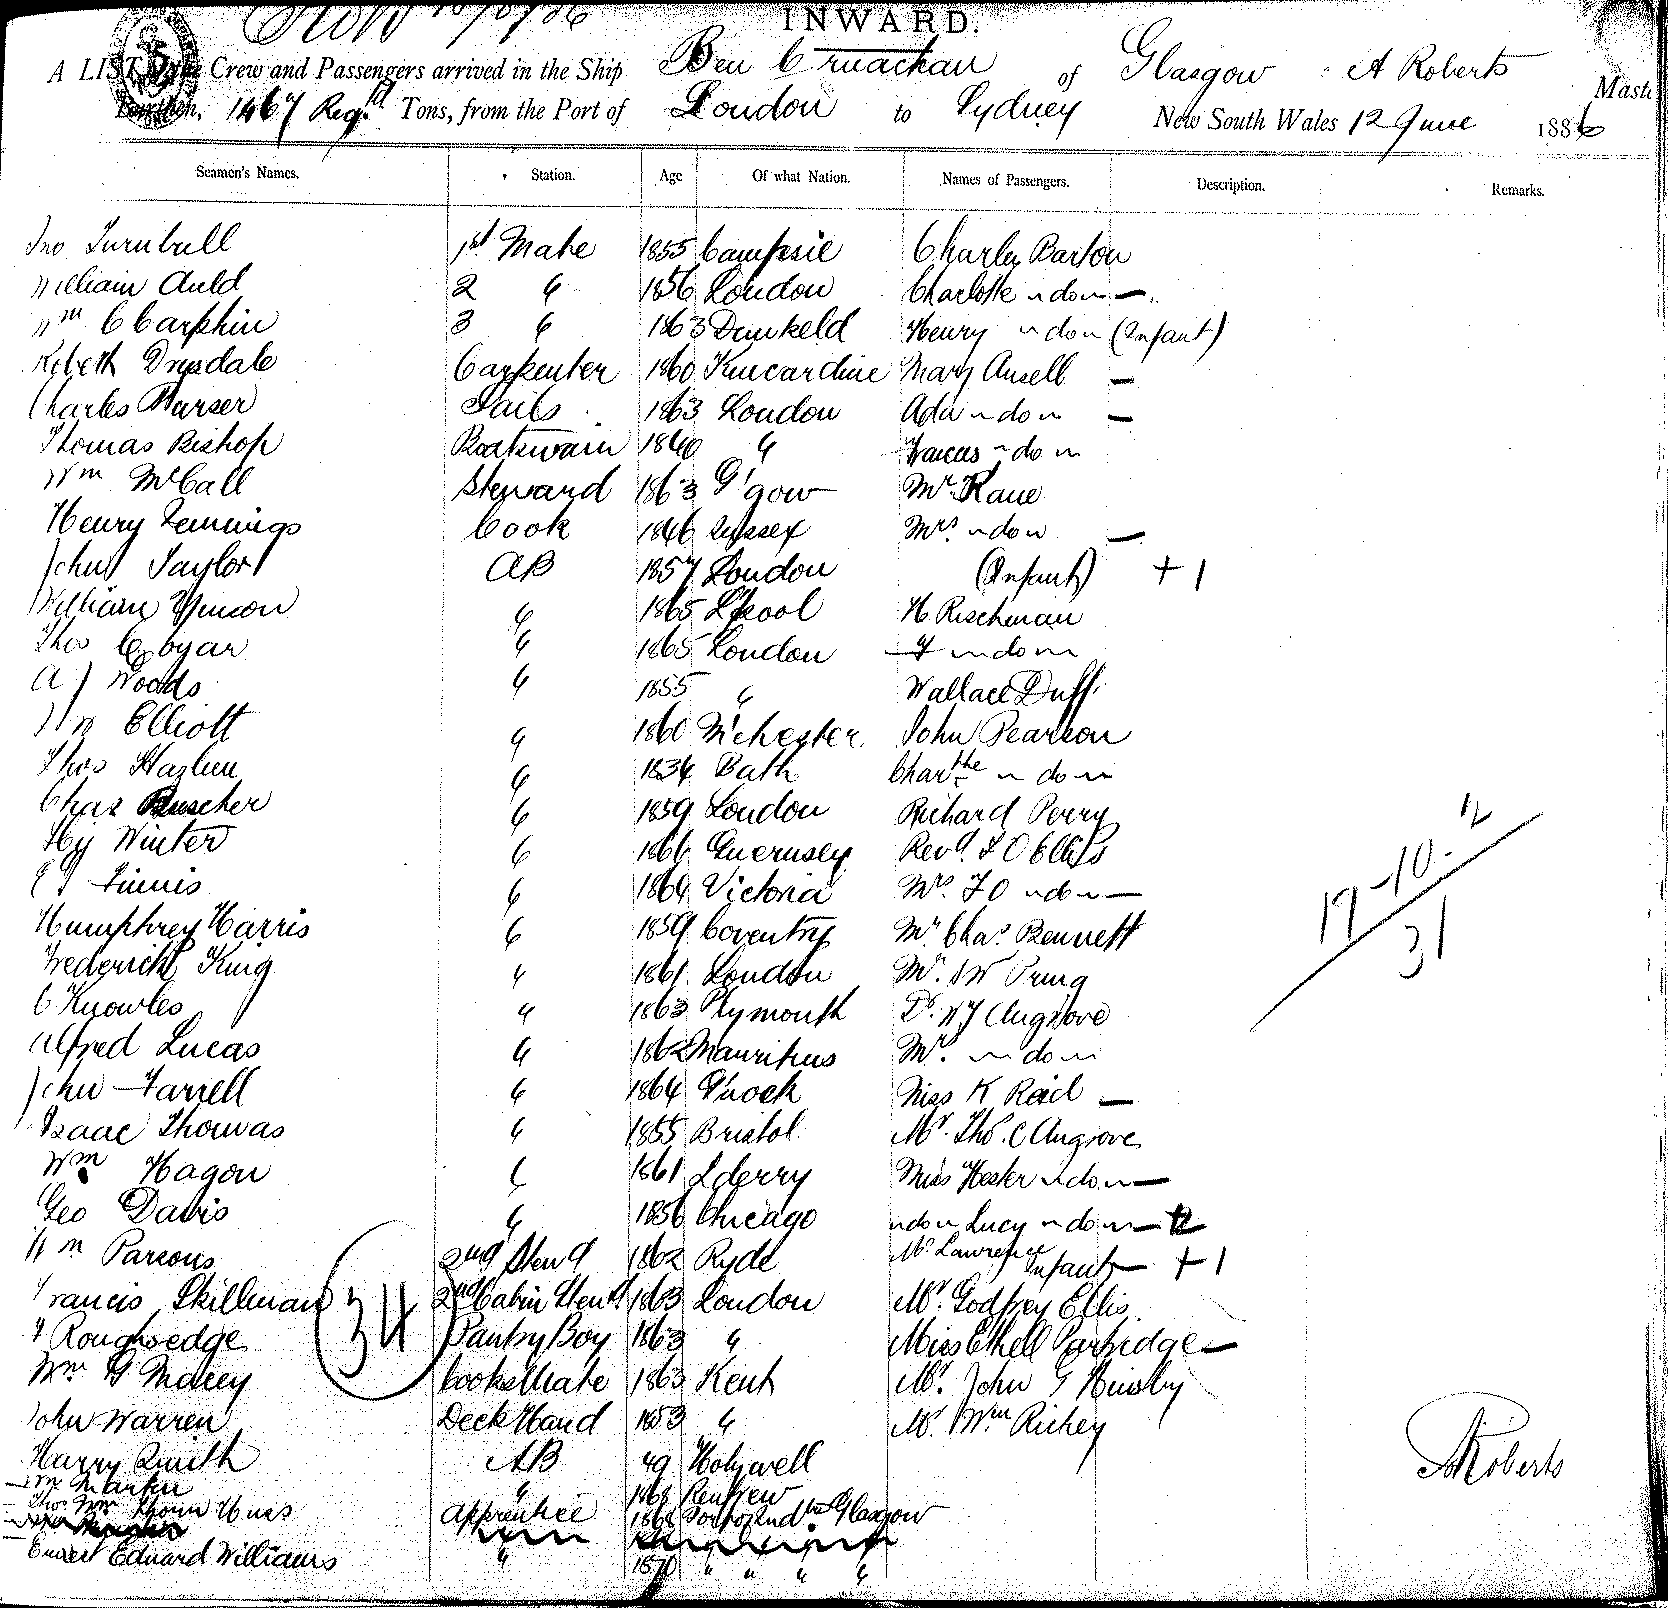 INWARD.
A LIST Crew and Passengers arrived in the Ship Ben Cruachan of Glasgow A Roberts Maste
Burthen, 1467 Regd Tons, from the Port of London to Sydney New South Wales 12 June 1886
Seamen's Names. Station. Age Of what Nation. Names of Passengers. Description. Remarks.
Jno Turnbull 1st Mate 1855 Campsie Charles Barton
William Auld 2 " 1856 London Charlotte " do " —
Wm C Carphin 3 " 1863 Dunkeld Henry " do " (Infant)
Robert Drysdale Carpenter 1860 Kincardine Mary Ansell —
Charles Purser Sails 1863 London Ada " do " —
Thomas Bishop Boatswain 1840 " Frances " do "
Wm McCall Steward 1863 G'gow Mr. Kane
Henry Jennings Cook 1846 Sussex Mrs. " do " —
John Taylor AB 1857 London (Infant) + 1
William " 1865 L'pool H Rischman
Thos " 1865 London F " do "
A J Woods " 1855 " Wallace Duff
Wm Elliott " 1860 M'chester John Pearson
Thos " 1834 Bath Charthe " do "
Chas Buscher " 1859 London Richard Perry
Hy Winter " 1866 Guernsey Revd. F O Ellis
Finnis " 1864 Victoria Mrs. F O " do " —
Humphrey Harris " 1859 Coventry Mr. Chas. Bennett
Frederick King " 1861 London Mr. Pring
C Knowles " 1863 Plymouth Dr. W J Angrove
Alfred Lucas " 1862 Mauritius Mr. " do "
John Farrell " 1864 G'nock Miss K Rail —
Isaac Thomas " 1855 Bristol Mr. Tho. C Angrove
Wm Hagon " 1861 L'derry Miss Hester " do " —
Geo Davis " 1856 Chicago " do " Lucy " do " — 12
Wm Parsons 2nd Stewd 1862 Ryde Mr Lawrence Infant — + 1
Francis Skillman 2nd Cabin Stewd 1863 London Mr. Godfrey Ellis
34
17-10-12
31
Roughsedge Pantry Boy 1863 " Miss Ethell Partridge —
Wm G Macey Cooks Mate 1863 Kent Mr. John G Hinsby
John Warren Deck Hand 1853 " Mr. Wm Richey
Harry Smith AB 49 Holywell
A Roberts
Wm Martin " 1868 Renfrew
Thos. Wm Huss Apprentice 1868 Glasgow
Ernest Edward Williams " 1870 " " " "